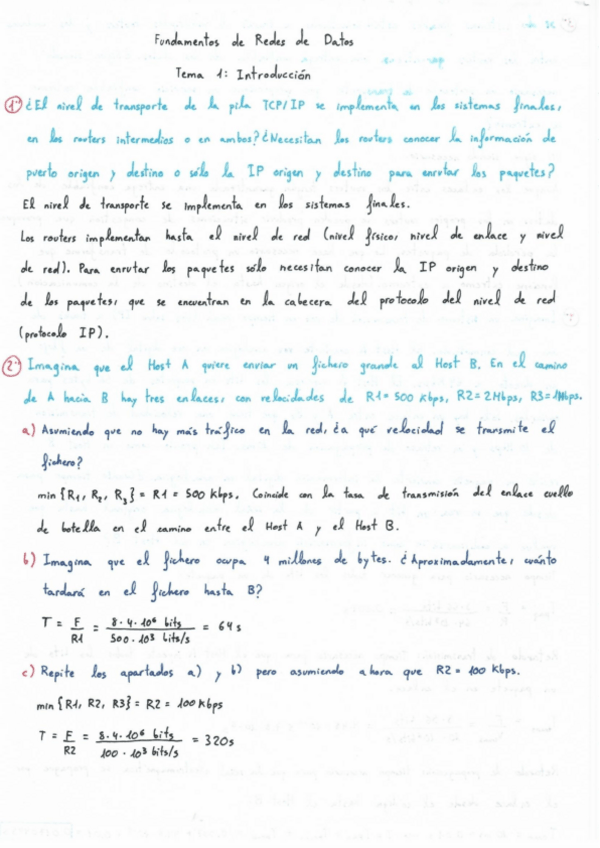 Fundamentos de Redes de Datos
Tema 1: Introducción
1.- ¿El nivel de transporte de la pila TCP/IP se implementa en los sistemas finales,
en los routers intermedios o en ambos? ¿Necesitan los routers conocer la información de
puerto origen y destino o sólo la IP origen y destino para enrutar los paquetes?
El nivel de transporte se implementa en los sistemas finales.
Los routers implementan hasta el nivel de red (nivel físico, nivel de enlace y nivel
de red). Para enrutar los paquetes sólo necesitan conocer la IP origen y destino
de los paquetes, que se encuentran en la cabecera del protocolo del nivel de red
(protocolo IP).
2.- Imagina que el Host A quiere enviar un fichero grande al Host B. En el camino
de A hacia B hay tres enlaces, con velocidades de R1= 500 Kbps, R2= 2Mbps, R3= 1Mbps.
a) Asumiendo que no hay más tráfico en la red, ¿a qué velocidad se transmite el
fichero?
min {R1, R2, R3} = R1 = 500 Kbps. Coincide con la tasa de transmisión del enlace cuello
de botella en el camino entre el Host A y el Host B.
b) Imagina que el fichero ocupa 4 millones de bytes. ¿Aproximadamente, cuánto
tardará en el fichero hasta B?
T = F/R1 = 8·4·10⁶ bits / 500·10³ bits/s = 64 s
c) Repite los apartados a) y b) pero asumiendo ahora que R2 = 100 Kbps.
min {R1, R2, R3} = R2 = 100 Kbps
T = F/R2 = 8·4·10⁶ bits / 100·10³ bits/s = 320s